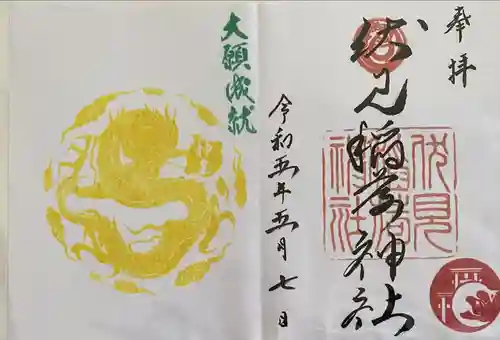 奉拝
伏見稲荷神社
伏見稲荷神社
令和五年五月七日
大願成就